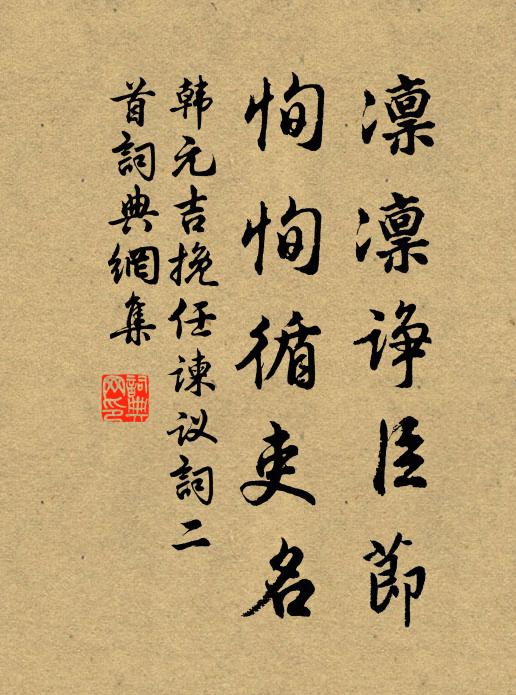 凛凛诤臣節
恂恂循吏名
韩元吉挽任谏议詞二
首詞典網集
詞典網印